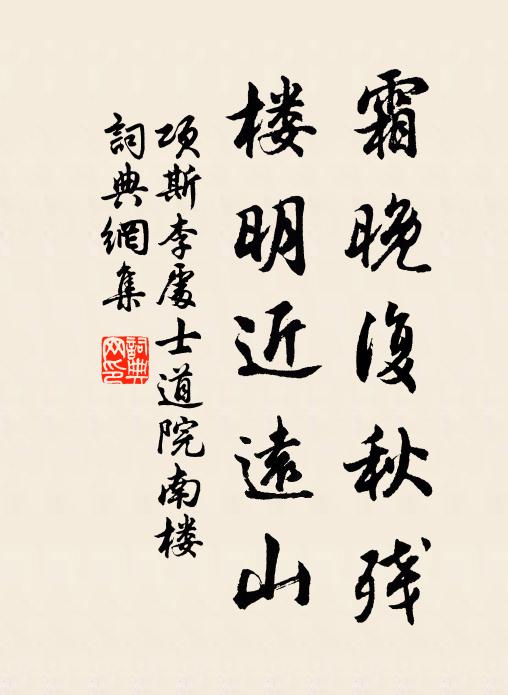 霜晚复秋残
楼明近遠山
项斯李處士道院南楼
詞典網集
詞典网印